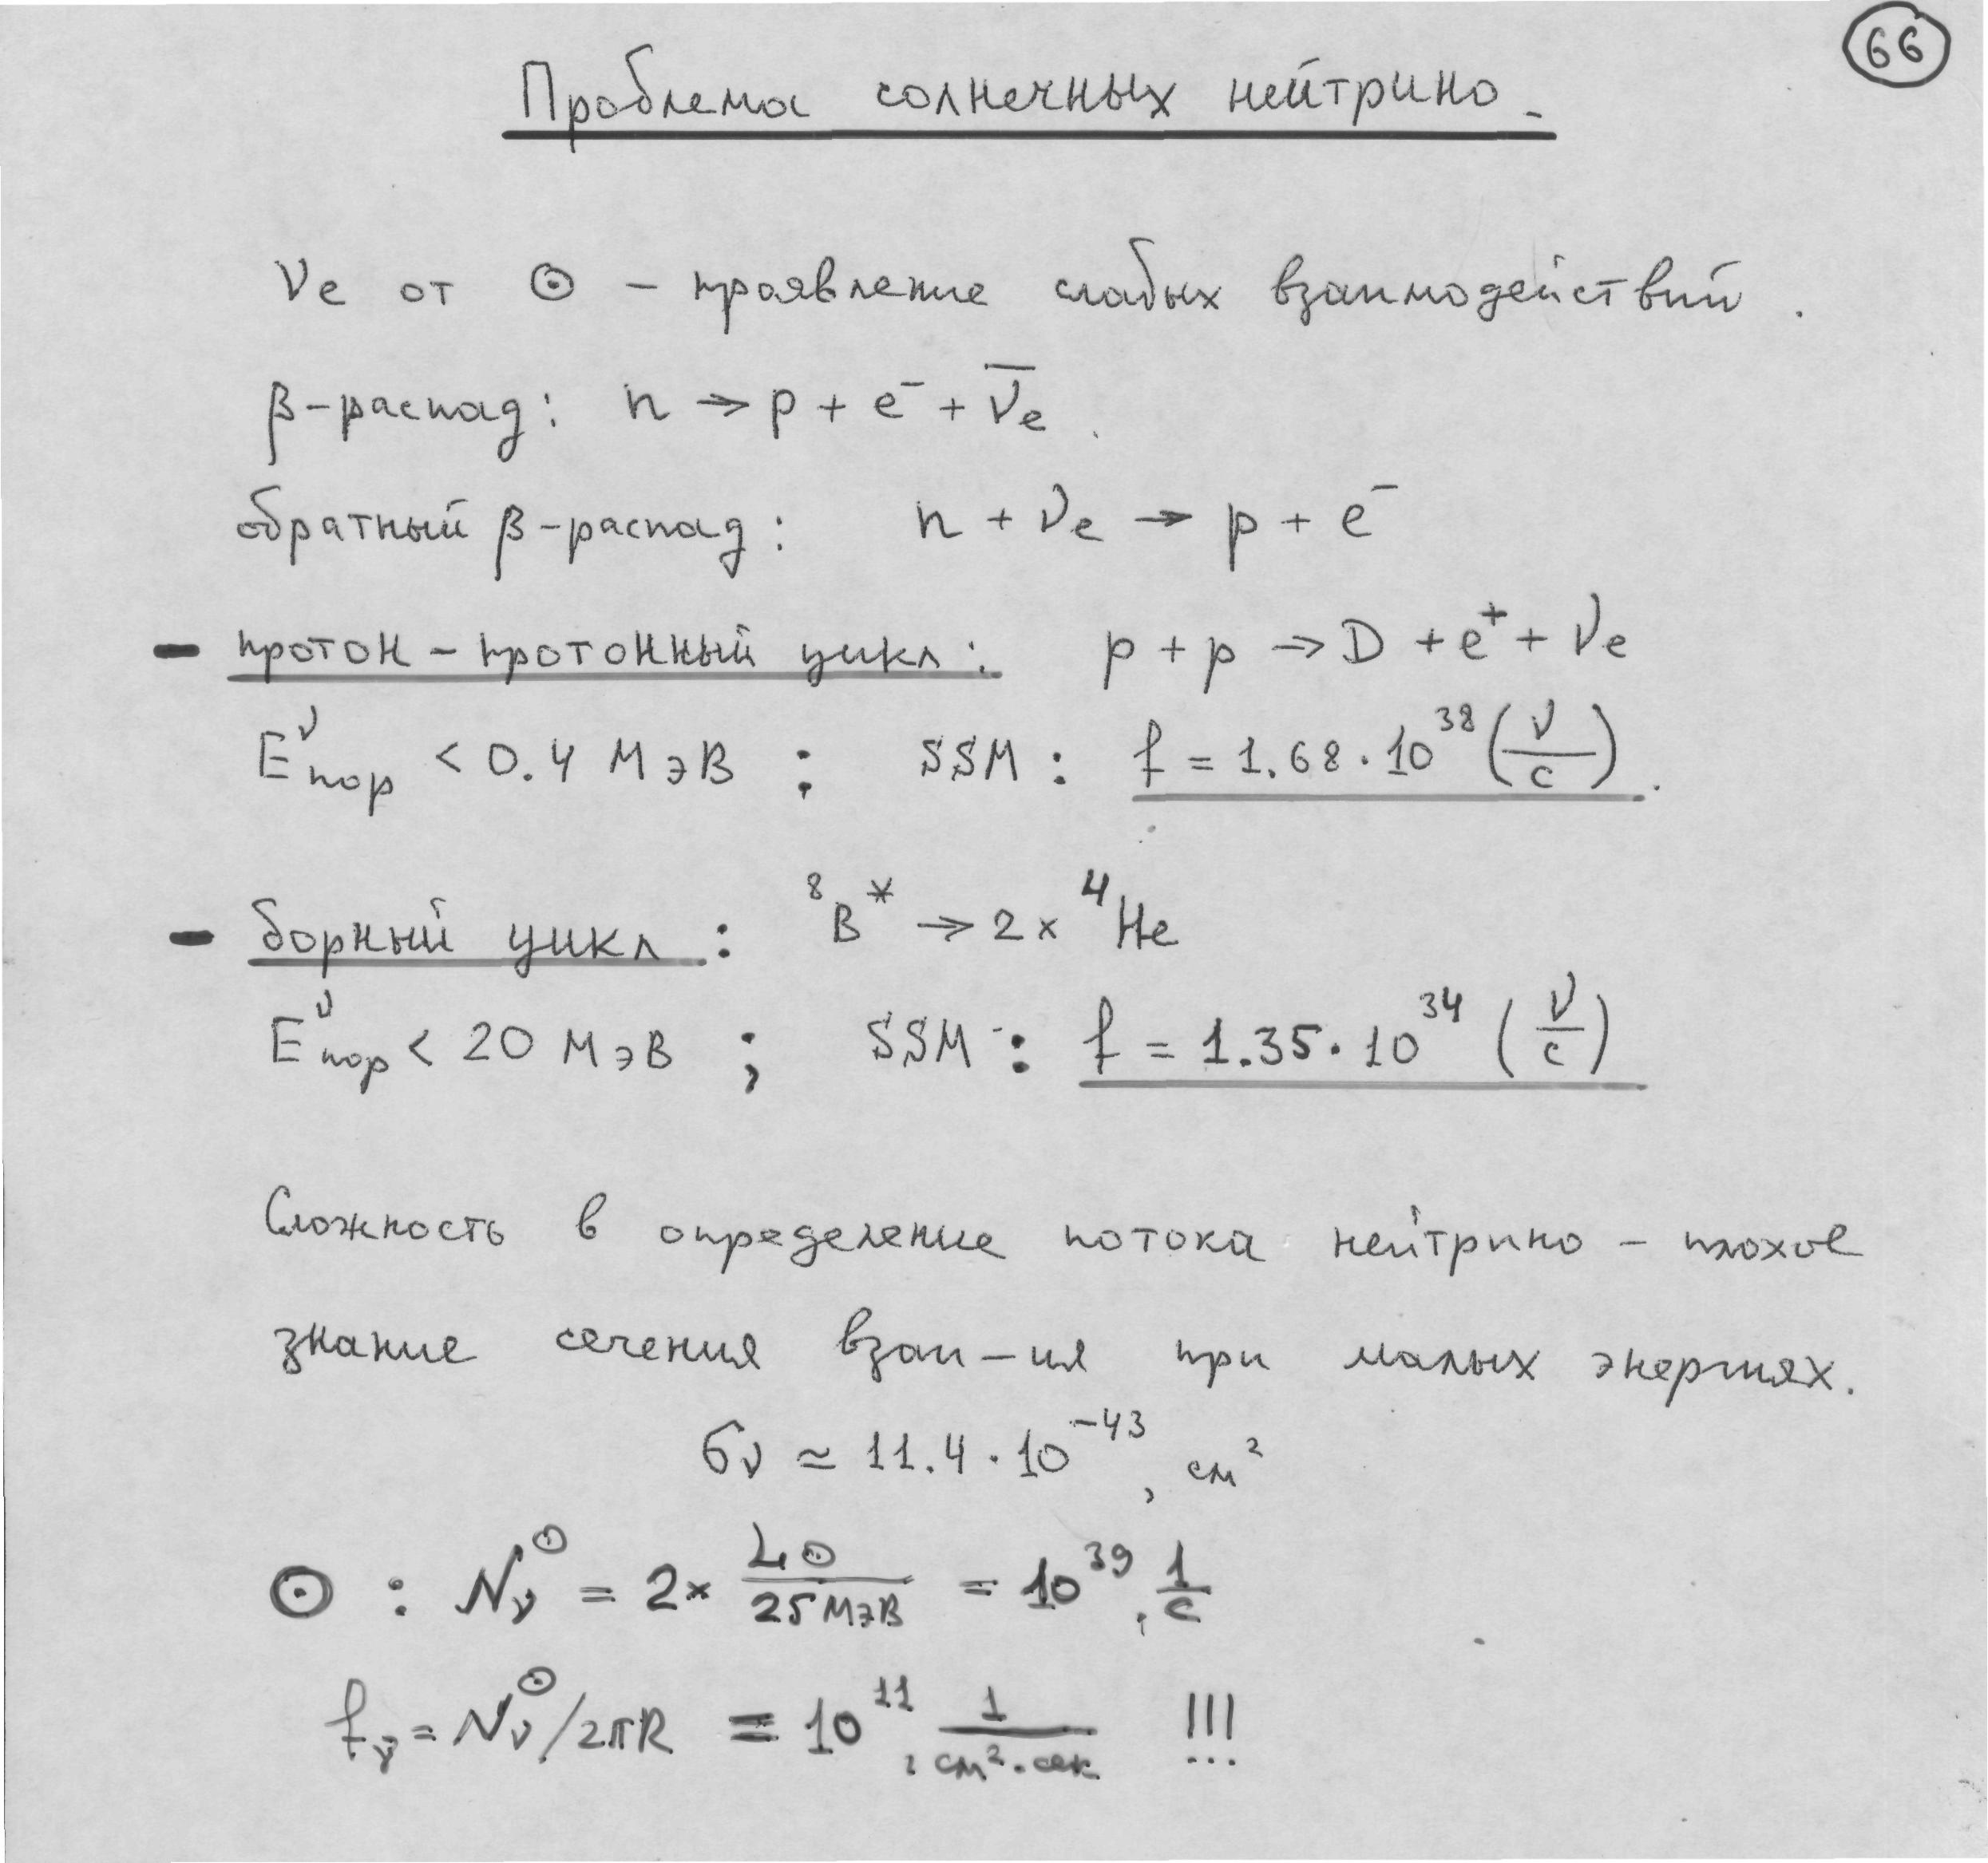 66
Проблема солнечных нейтрино.
νe от ⊙ – проявление слабых взаимодействий.
β-распад: n → p + e⁻ + ν̅e.
обратный β-распад: n + νe → p + e⁻
– протон-протонный цикл: p + p → D + e⁺ + νe
E^ν_пор < 0.4 МэВ ; SSM: f = 1.68·10³⁸ (ν/c).
– борный цикл: ⁸B* → 2 × ⁴He
E^ν_пор < 20 МэВ ; SSM: f = 1.35·10³⁴ (ν/c)
Сложность в определение потока нейтрино – плохое
знание сечения взаи-ия при малых энергиях.
σν ≃ 11.4·10⁻⁴³, см²
⊙ : Nν^⊙ = 2× L⊙/25МэВ = 10³⁹, 1/c
fν = Nν^⊙/2πR = 10¹¹, 1/см²·сек !!!